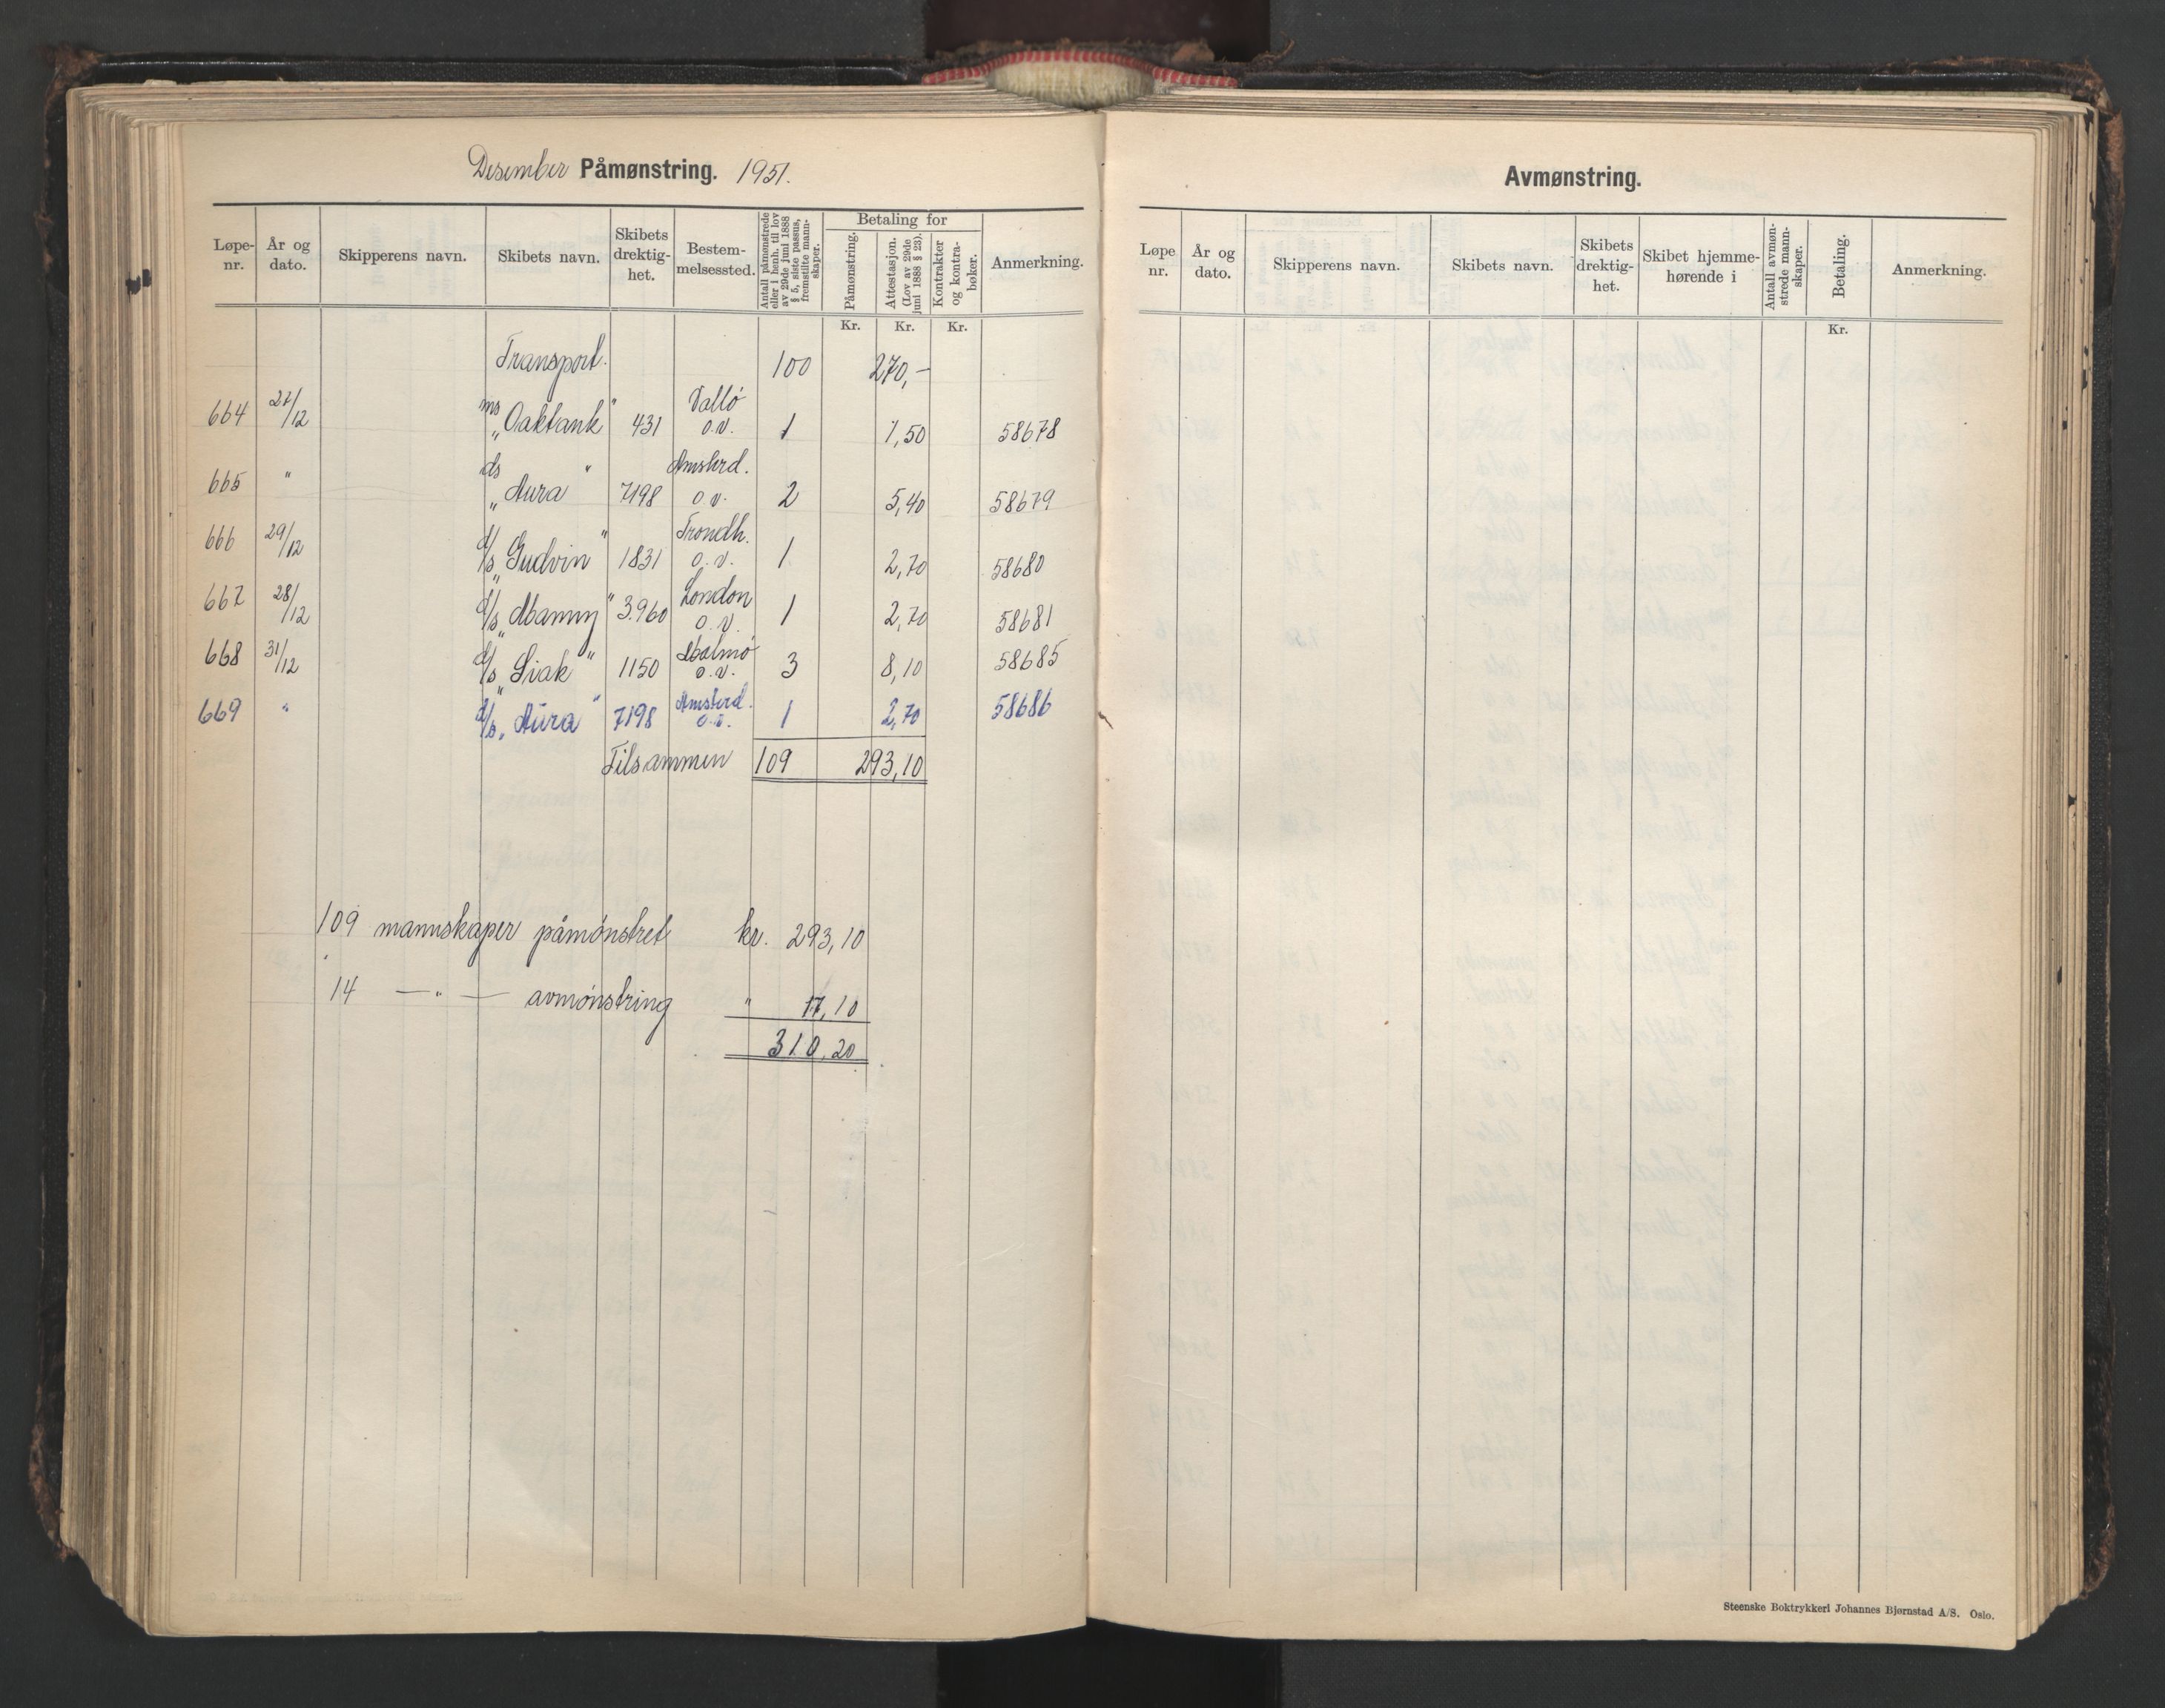 Desember Påmønstring. 1951.
Løpe-nr.
År og dato.
Skipperens navn.
Skibets navn.
Skibets drektig-het.
Bestem-melsessted.
Antall påmønstrede eller i henh. til lov av 29de juni 1888 § 5, siste passus, fremstilte mann-skaper.
Betaling for
Påmønstring.
Attestasjon. (Lov av 29de juni 1888 § 23).
Kontrakter og kontra-bøker.
Anmerkning.
Kr. Kr. Kr.
Transport. 100 270,-
664 27/12 ms "Oaktank" 431 Vallö o.v. 1 1,50 58678
665 " ds "Aura" 7198 Amsterd. o.v. 2 5,40 58679
666 29/12 d/s "Gudvin" 1831 Trondh. o.v. 1 2,70 58680
667 28/12 d/s "Manny" 3.960 London o.v. 1 2,70 58681
668 31/12 d/s "Siak" 1150 Malmö o.v. 3 8,10 58685
669 " d/s "Aura" 7198 Amsterd. o.v. 1 2,70 58686
Tilsammen 109 293,10
109 mannskaper påmönstret kr. 293,10
14 — " — avmönstring " 17,10
310,20
Avmønstring.
Løpe nr.
År og dato.
Skipperens navn.
Skibets navn.
Skibets drektig-het.
Skibet hjemme-hørende i
Antall avmøn-strede mann-skaper.
Betaling.
Anmerkning.
Kr.
Steenske Boktrykkeri Johannes Bjørnstad A/S. Oslo.